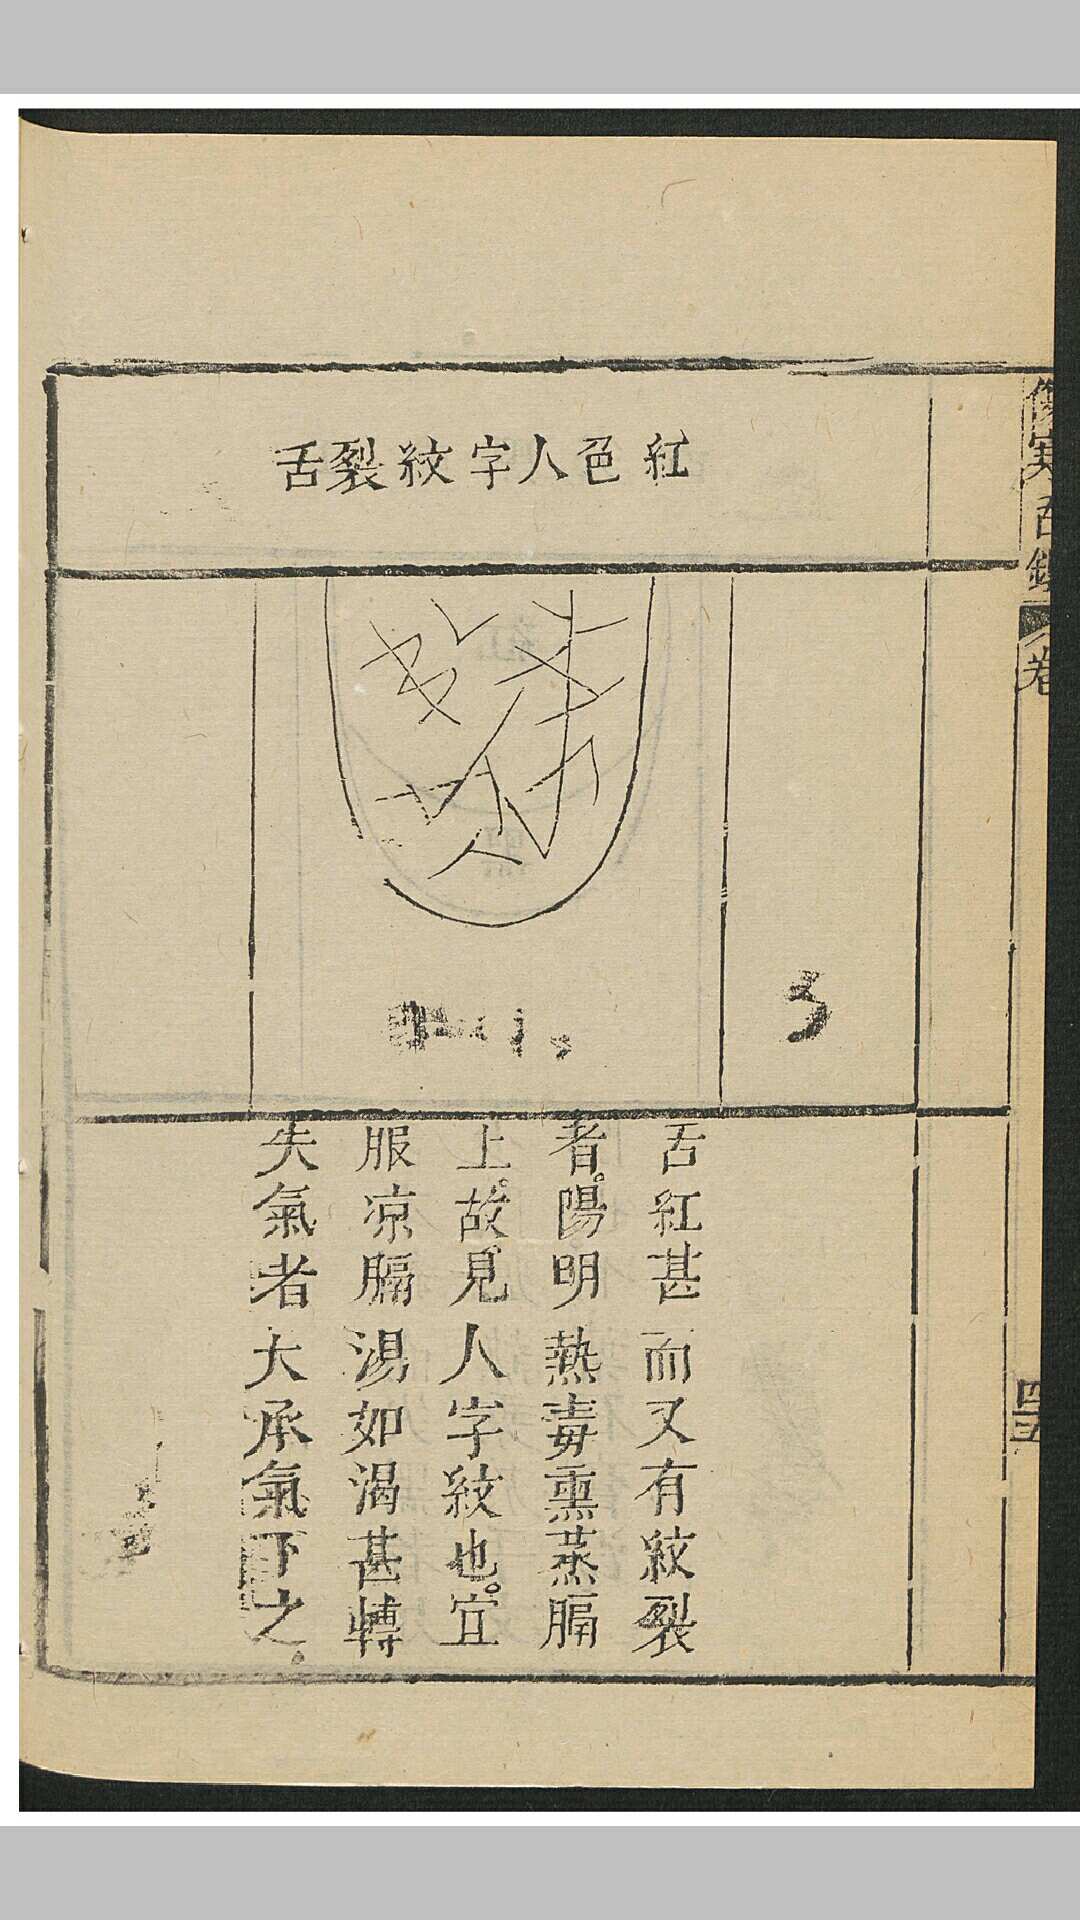 傷寒舌鑑
卷
四五
紅色人字紋裂舌
舌紅甚而又有紋裂
者。陽明熱毒熏蒸膈
上。故見人字紋也。宜
服凉膈湯如渴甚轉
失氣者大承氣下之。